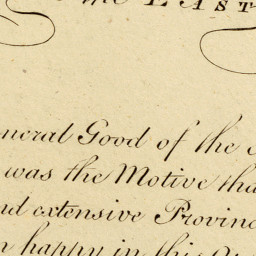 the EAST
General Good of the
was the Motive tha
nd extensive Provinc
n happy in this